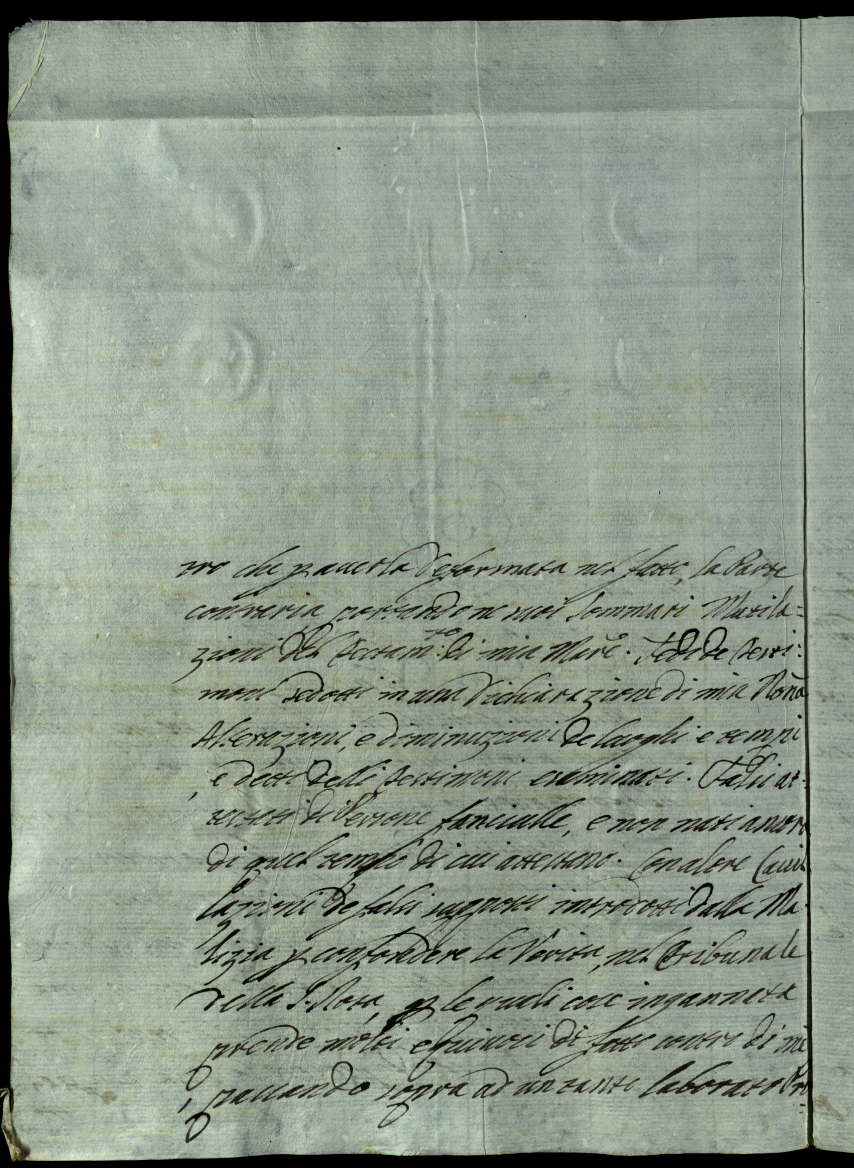 tro che p averla deformata nel fatto, la Parte
contraria portando ne suoi Sommari Mutila=
zioni del Testam:to di mia Mad.e Fede de Testi:
moni sedotti in una Dichiarazione di mia Nonna
Alterazioni, e diminuzioni de luoghi e tempi
e detti delli Testimoni esaminati. Falsi at:
testati di Persone fanciulle, e non nati ancora
di quel tempo di cui attestano. Con altre Cavil
lazioni de falsi supposti introdotti dalla Ma
lizia p confondere la Verità, nel Tribunale
della S. Rota, p le quali cose ingannata
prende molti equivoci di fatto contro di me
passando sopra ad un tanto laborato